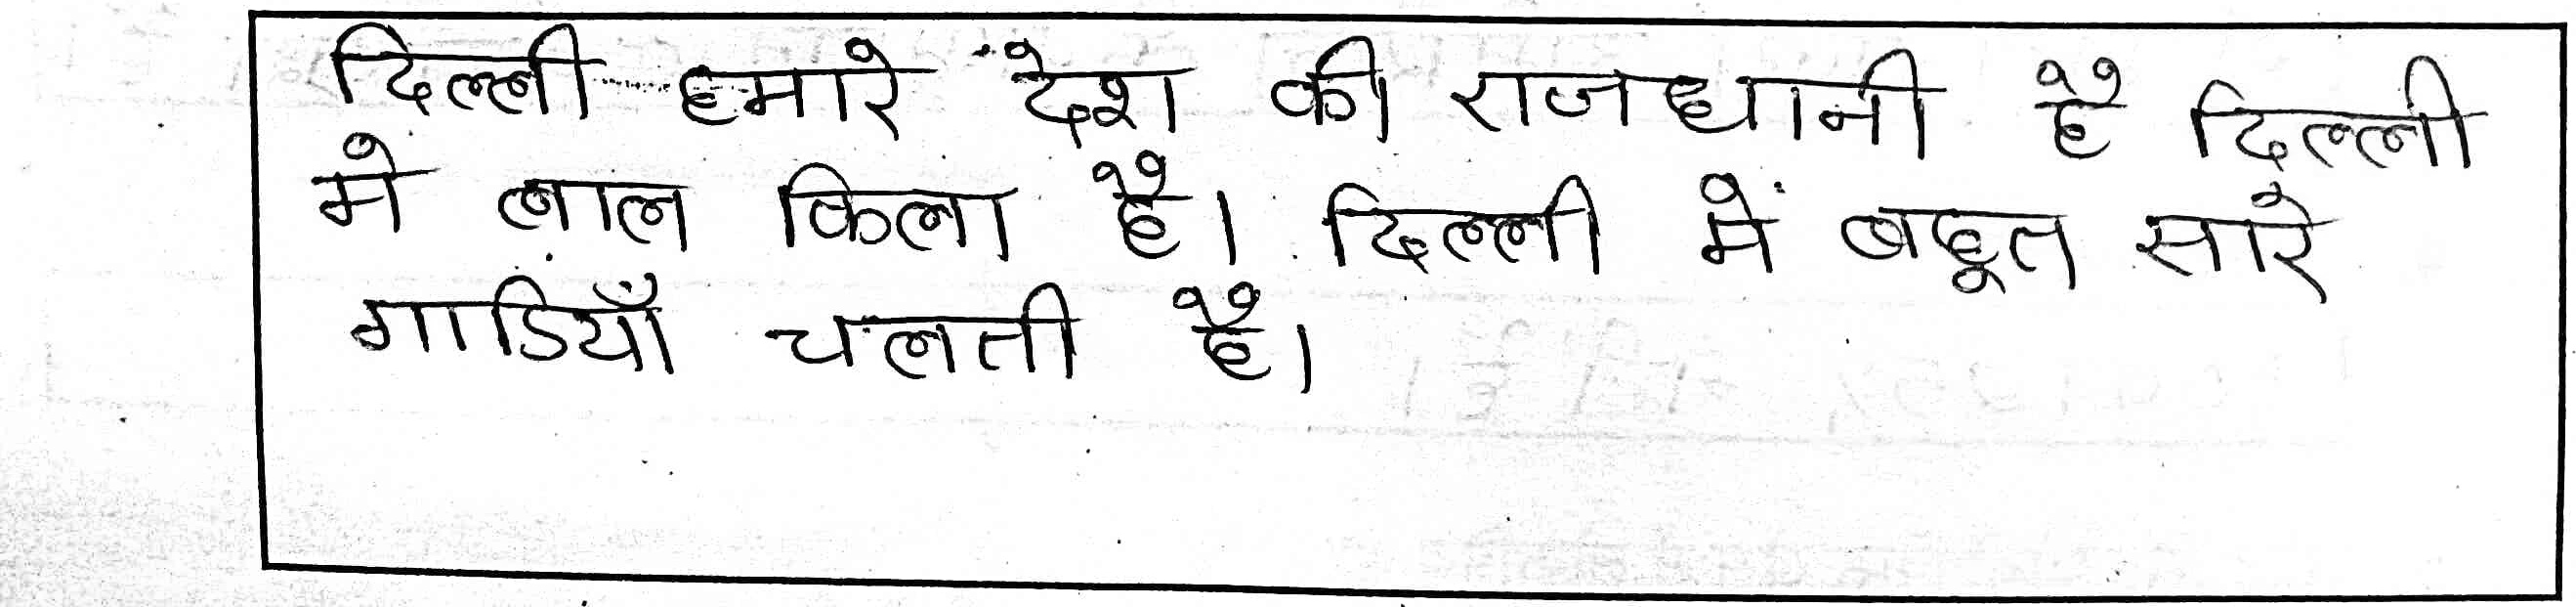 दिल्ली हमारे देश की राजधानी है दिल्ली
मे लाल किला है। दिल्ली में बहूत सारे
गाडियाँ चलती है।